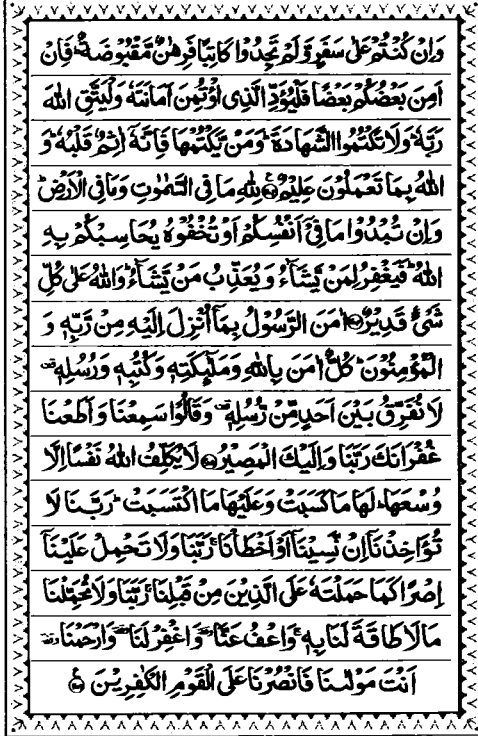 وَاِنْ كُنْتُمْ عَلٰى سَفَرٍ وَّلَمْ تَجِدُوْا كَاتِبًا فَرِهٰنٌ مَّقْبُوْضَةٌ ؕ فَاِنْ
اَمِنَ بَعْضُكُمْ بَعْضًا فَلْيُؤَدِّ الَّذِى اؤْتُمِنَ اَمَانَتَهٗ وَلْيَتَّقِ اللّٰهَ
رَبَّهٗ ؕ وَلَا تَكْتُمُوا الشَّهَادَةَ ؕ وَمَنْ يَّكْتُمْهَا فَاِنَّهٗۤ اٰثِمٌ قَلْبُهٗ ؕ وَ
اللّٰهُ بِمَا تَعْمَلُوْنَ عَلِيْمٌ لِلّٰهِ مَا فِى السَّمٰوٰتِ وَمَا فِى الْاَرْضِ ؕ
وَاِنْ تُبْدُوْا مَا فِىْۤ اَنْفُسِكُمْ اَوْ تُخْفُوْهُ يُحَاسِبْكُمْ بِهِ
اللّٰهُ ؕ فَيَغْفِرُ لِمَنْ يَّشَآءُ وَيُعَذِّبُ مَنْ يَّشَآءُ ؕ وَاللّٰهُ عَلٰى كُلِّ
شَىْءٍ قَدِيْرٌ اٰمَنَ الرَّسُوْلُ بِمَاۤ اُنْزِلَ اِلَيْهِ مِنْ رَّبِّهٖ وَ
الْمُؤْمِنُوْنَ ؕ كُلٌّ اٰمَنَ بِاللّٰهِ وَمَلٰٓئِكَتِهٖ وَكُتُبِهٖ وَرُسُلِهٖ
لَا نُفَرِّقُ بَيْنَ اَحَدٍ مِّنْ رُّسُلِهٖ وَقَالُوْا سَمِعْنَا وَاَطَعْنَا
غُفْرَانَكَ رَبَّنَا وَاِلَيْكَ الْمَصِيْرُ لَا يُكَلِّفُ اللّٰهُ نَفْسًا اِلَّا
وُسْعَهَا ؕ لَهَا مَا كَسَبَتْ وَعَلَيْهَا مَا اكْتَسَبَتْ ؕ رَبَّنَا لَا
تُؤَاخِذْنَاۤ اِنْ نَّسِيْنَاۤ اَوْ اَخْطَاْنَا ۚ رَبَّنَا وَلَا تَحْمِلْ عَلَيْنَاۤ
اِصْرًا كَمَا حَمَلْتَهٗ عَلَى الَّذِيْنَ مِنْ قَبْلِنَا ۚ رَبَّنَا وَلَا تُحَمِّلْنَا
مَا لَا طَاقَةَ لَنَا بِهٖ ۚ وَاعْفُ عَنَّا وَاغْفِرْ لَنَا وَارْحَمْنَا
اَنْتَ مَوْلٰىنَا فَانْصُرْنَا عَلَى الْقَوْمِ الْكٰفِرِيْنَ